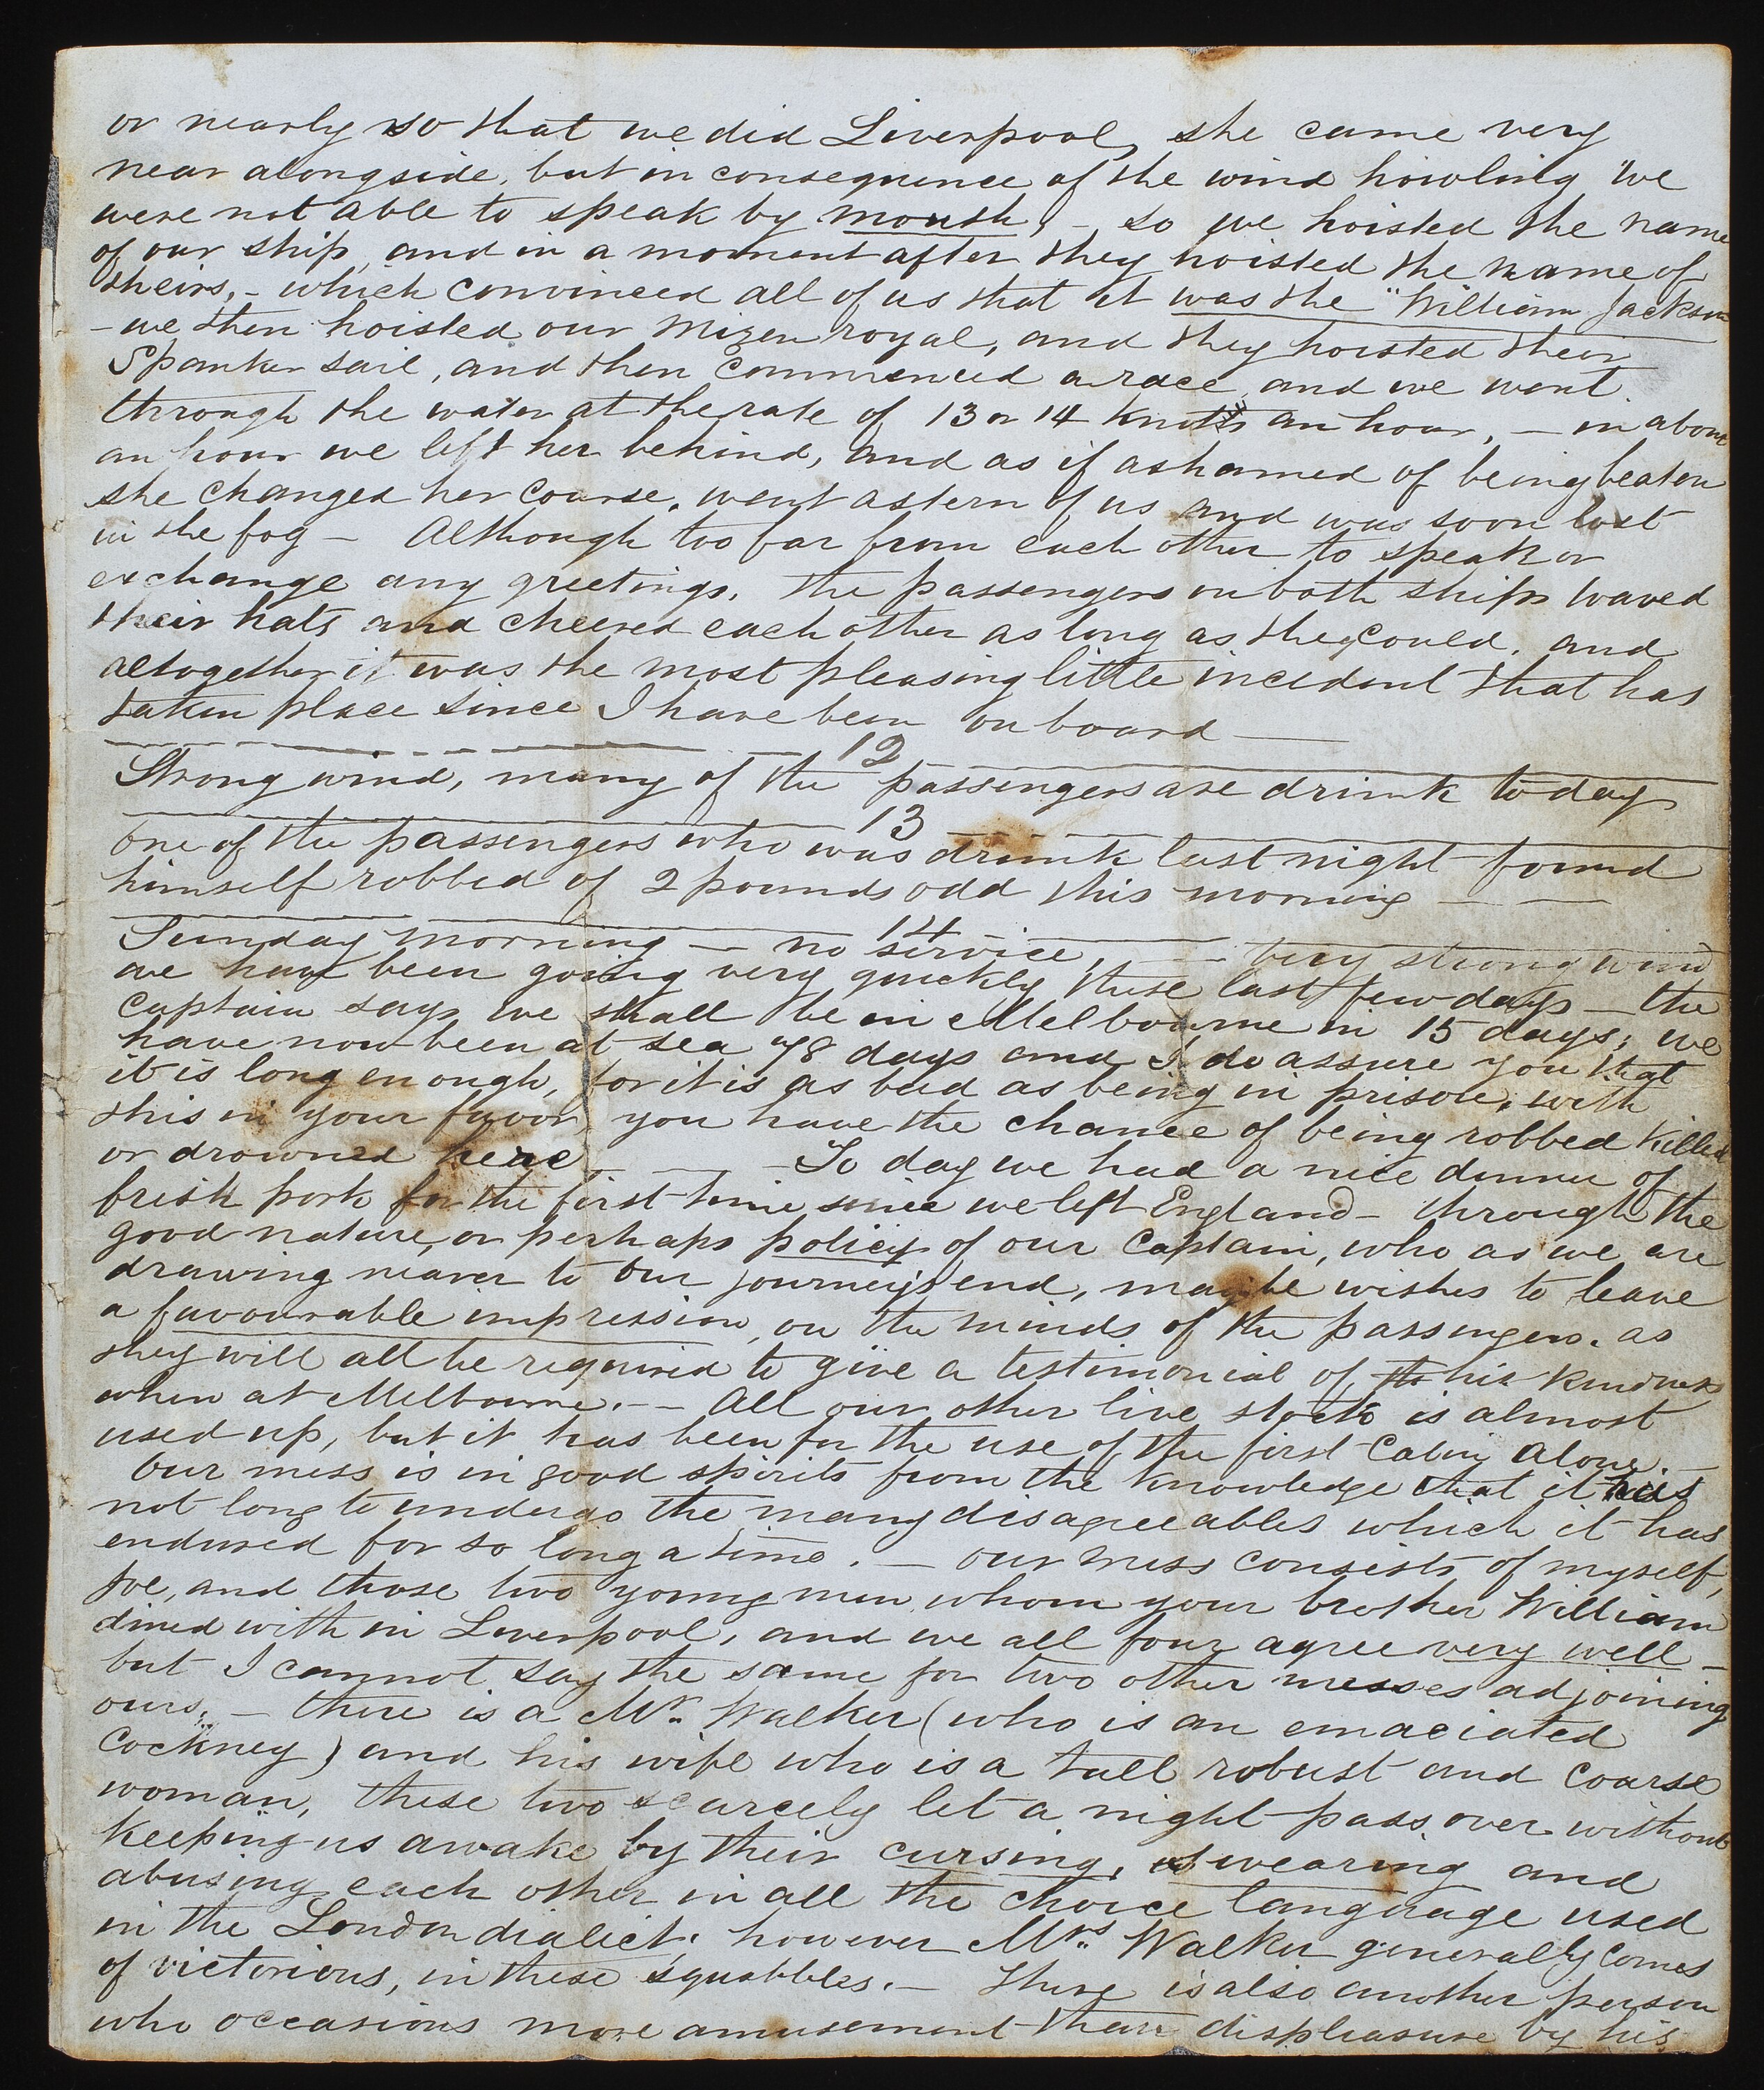 or nearly so that we did Liverpool, she came very
near alongside, but in consequence of the wind howling we
were not able to speak by mouth, - so we hoisted the name
of our ship, and in a moment after they hoisted the name of
theirs, - which convinced all of us that it was the "William Jackson
- we then hoisted our Mizen royal, and they hoisted their
Spanker sail, and then commenced a race and we went
through the water at the rate of 13 or 14 knots an hour, — in about
an hour we left her behind, and as if ashamed of being beaten
she changed her course, went astern of us and was soon lost
in the fog — Although too far from each other to speak or
exchange any greetings, the passengers on both ships waved
their hats and cheered each other as long as they could, and
altogether it was the most pleasing little incident that has
taken place since I have been on board —
12
Strong wind, many of the passengers are drunk to day
13
one of the passengers who was drunk last night found
himself robbed of 2 pounds odd this morning — —
14
Sunday morning — no service, — very strong wind
we have been going very quickly these last few days — the
captain says we shall be in Melbourne in 15 days; we
have now been at sea 78 days and I do assure you that
it is long enough, for it is as bad as being in prison, with
this in your favor, you have the chance of being robbed killed
or drowned here, — — — To day we had a nice dinner of
fresh pork for the first time since we left England — through the
good nature, or perhaps policy of our Captain, who as we are
drawing nearer to our journey's end, maybe wishes to leave
a favourable impression on the minds of the passengers, as
they will all be required to give a testimonial of his kindness
when at Melbourne. — All our other live stock is almost
used up, but it has been for the use of the first Cabin alone. —
Our mess is in good spirits from the knowledge that it has
not long to undergo the many disagreeables which it has
endured for so long a time. — our mess consists of myself,
Joe, and those two young men whom your brother William
dined with in Liverpool, and we all four agree very well —
but I cannot say the same for two other messes adjoining
ours, — there is a Mr. Walker (who is an emaciated
Cockney) and his wife who is a tall robust and coarse
woman, these two scarcely let a night pass over without
keeping us awake by their cursing, swearing and
abusing each other in all the choice language used
in the London dialect. however Mrs. Walker generally comes
of victorious, in these squabbles. — There is also another person
who occasions more amusement than displeasure by his